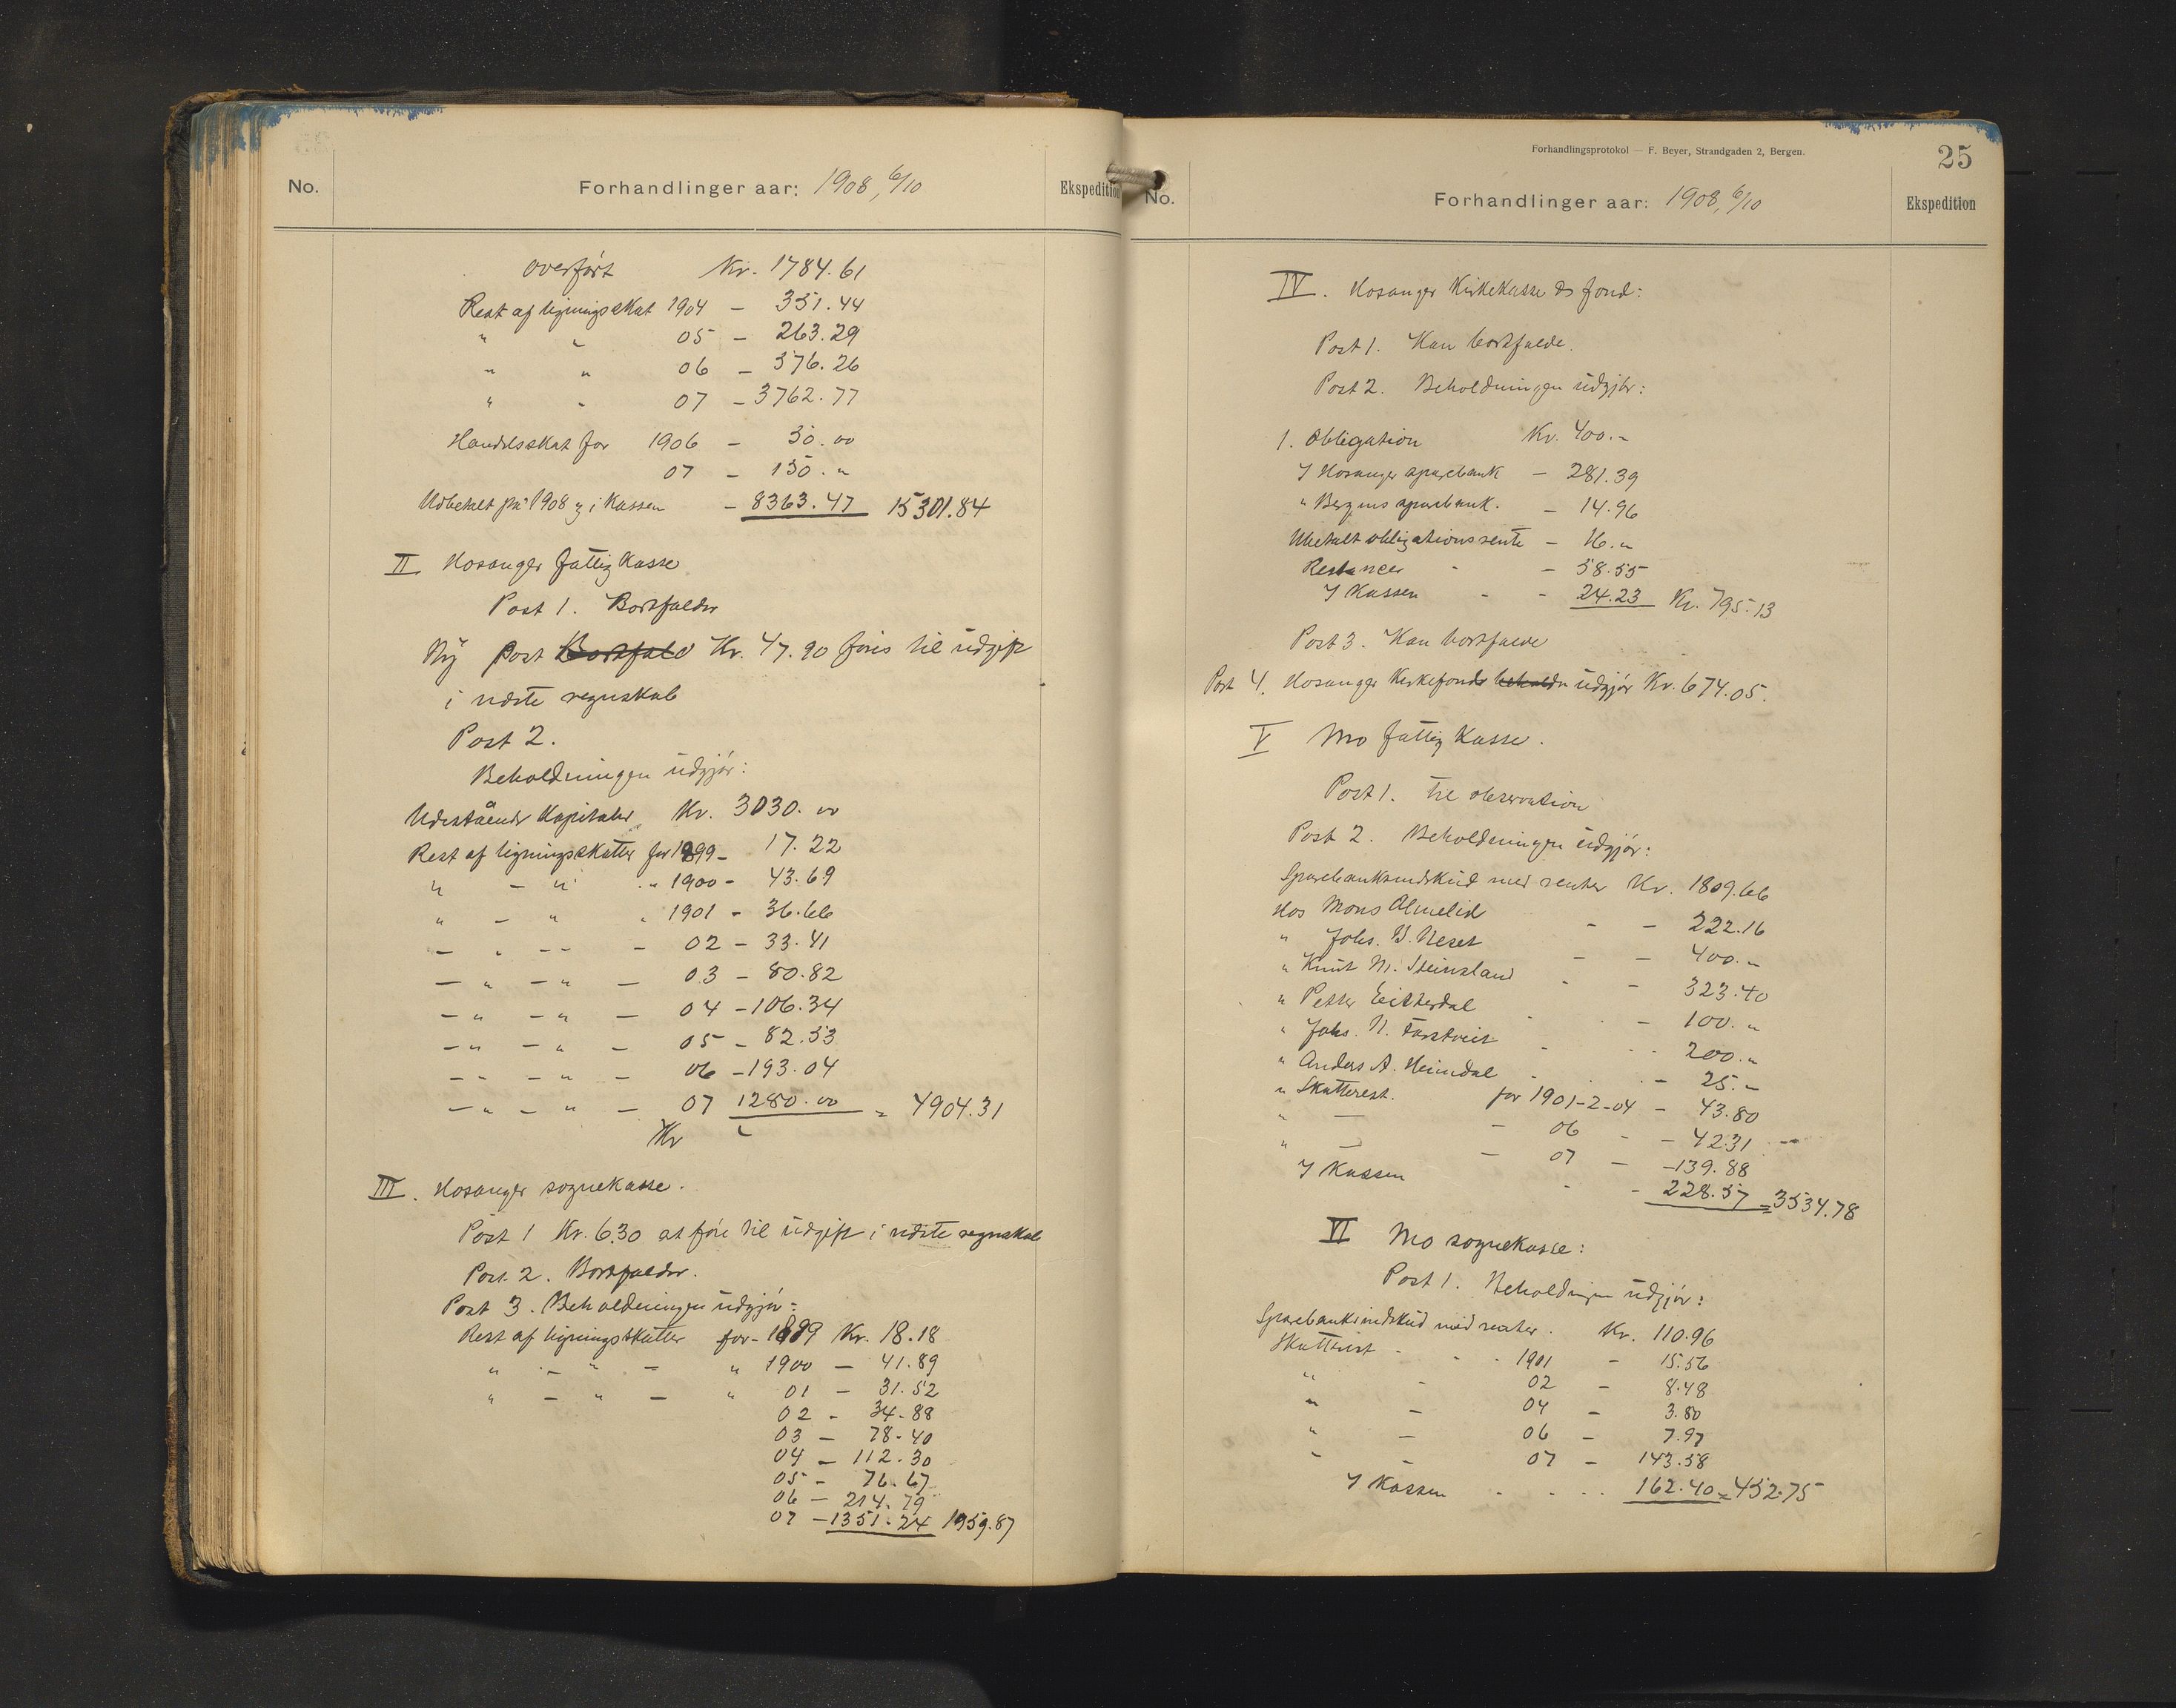 No.
Forhandlinger aar: 1908, 6/10
Ekspedition
overført Kr. 1784.61
Rest af ligningsskat 1904 - 351.44
" " 05 - 263.29
" " 06 - 376.26
" " 07 - 3762.77
Handelsskat for 1906 - 30.00
07 - 150."
Udbetalt på 1908 & i Kassen - 8363.47 15301.84
II Hosanger fattigkasse
Post 1. Bortfalder
Ny post Bortfald Kr. 47.90 føres til udgift
i næste regnskab
Post 2.
Beholdningen udgjør:
Udestående Kapitaler Kr. 3030.00
Rest af ligningsskatter for 1899 - 17.22
" - " " 1900 - 43.69
" - " " 1901 - 36.66
- " - - - 02 - 33.41
- " - " - 03 - 80.82
- " - " - 04 - 106.34
- " - " - 05 - 82.53
- " - " - 06 - 193.04
- " - " - 07 1280.00 = 4904.31
Kr
III. Hosanger sognekasse.
Post 1 Kr. 6.30 at føre til udgift i næste regnskab
Post 2. Bortfalder.
Post 3. Beholdningen udgjør:
Rest af ligningsskatter for - 1899 Kr. 18.18
" - " - " 1900 - 41.89
" - " - " 01 - 31.52
02 - 34.88
03 - 78.40
04 - 112.30
05 - 76.67
06 - 214.79
07 - 1351.24 1959.87
Forhandlingsprotokol — F. Beyer, Strandgaden 2, Bergen.
25
No.
Forhandlinger aar: 1908, 6/10
Ekspedition
IV. Hosanger Kirkekasse & fond:
Post 1. Kan bortfalde.
Post 2. Beholdningen udgjør:
1. Obligation Kr. 400.-
I Hosanger sparebank - 281.39
" Bergens sparebank. - 14.96
Ubetalt obligationsrente - 16."
Restancer - - 58.55
I Kassen - - 24.23 Kr. 795.13
Post 3. Kan bortfalde
Post 4. Hosanger Kirkefonds udgjør Kr. 674.05.
V Mo fattigkasse.
Post 1. Til observation
Post 2. Beholdningen udgjør:
Sparebankindskud med renter Kr. 1809.66
Hos Mons Olmelid - - 222.16
" Johs. B. Neset - - 400.-
" Knut M. Steinsland - - 323.40
" Petter Eitterdal - - 100."
" Johs. N. - - 200."
" Anders A. Heimdal - - 25.-
" Skatterest. for 1901-2-04 - 43.80
" — - 06 - - 42.31
" — - 07 - - 139.88
I Kassen - - 228.57 = 3534.78
VI Mo sognekasse:
Post 1. Beholdningen udgjør:
Sparebankindskud med renter. Kr. 110.96
Skatterest - - - 1901 - 15.56
" - 02 - 8.48
" - 04 - 3.80
" - 06 - 7.97
" - 07 - 143.58
I Kassen - - - - 162.40 = 452.75